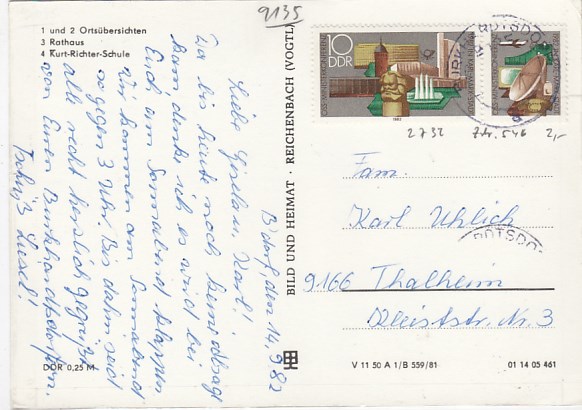 9135
1 und 2 Ortsübersichten
3 Rathaus
4 Kurt-Richter-Schule
B'dorf, den 14.9.82
Liebe Gislau, Karl!
Da bis heute noch keine Absage
kam denke ich es wird bei
Euch am Sonnabend klappen
Wir kommen am Sonnabend
so gegen 3 Uhr. Bis dahin seid
alle recht herzlich gegrüßt
von Euren Burkhardtsdorfern.
Tschüß Liesel!
DDR 0,25 M
BILD UND HEIMAT · REICHENBACH (VOGTL)
10
DDR
1982
2732
Zdr. 546
2,-
Fam.
Karl Uhlich
9166 Thalheim
Kleiststr. Nr. 3
V 11 50 A 1/B 559/81
01 14 05 461